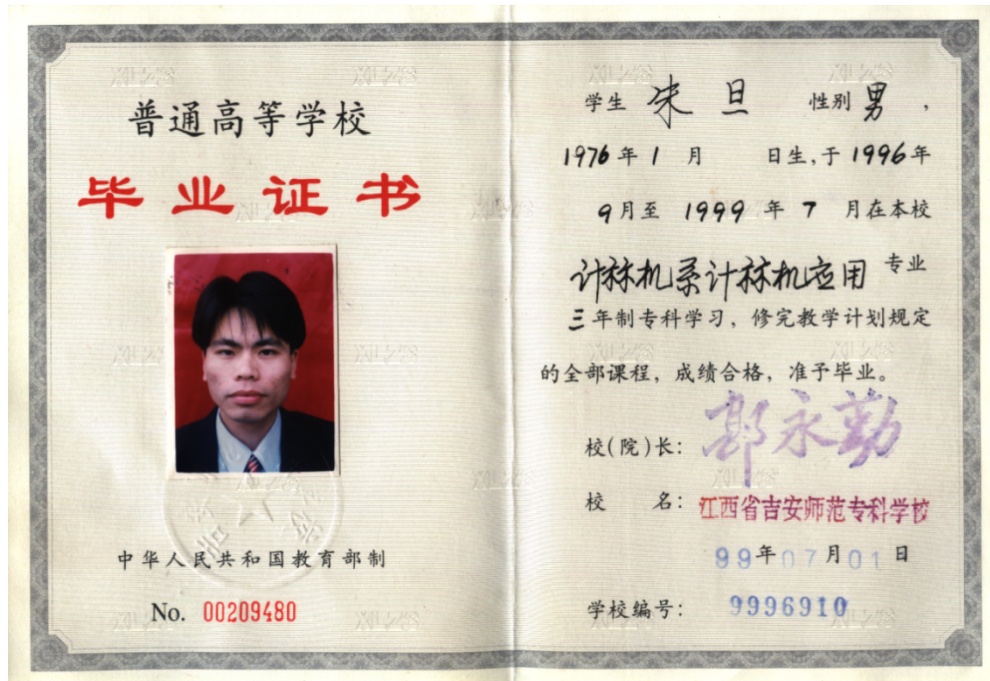 普通高等学校
毕业证书
中华人民共和国教育部制
No. 00209480
学生 朱旦 性别 男 ,
1976 年 1 月 日生,于 1996 年
9 月至 1999 年 7 月在本校
计祘机系计祘机应用 专业
三 年制专科学习，修完教学计划规定
的全部课程，成绩合格，准予毕业。
校(院)长： 郭永勤
校 名： 江西省吉安师范专科学校
99 年 07 月 01 日
学校编号： 9996910